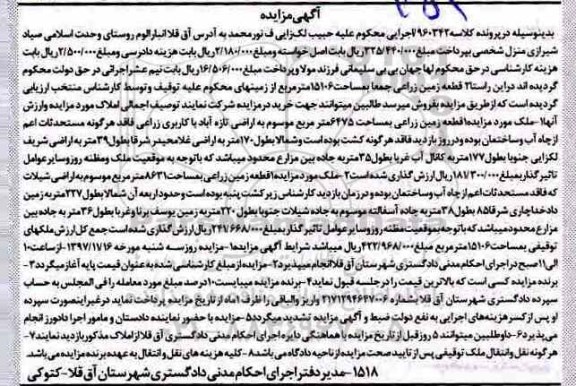 آگهی مزایده
بدینوسیله در پرونده کلاسه ۹۶۰۳۴۲ اجرایی محکوم علیه حبیب لک‌زایی ف نورمحمد به آدرس آق قلا انبارالوم روستای وحدت اسلامی صیاد
شیرازی منزل شخصی بپرداخت مبلغ ۳۲۵/۴۴۰/۰۰۰ریال بابت اصل خواسته ومبلغ ۲/۱۸۰/۰۰۰ریال بابت هزینه دادرسی ومبلغ ۲/۵۰۰/۰۰۰ریال بابت
هزینه کارشناسی در حق محکوم لها جهان بی بی سلیمانی فرزند مولا وپرداخت مبلغ ۱۶/۵۰۶/۰۰۰ریال بابت نیم عشر اجرائی در حق دولت محکوم
گردیده اند در این راستا ۲ قطعه زمین زراعی جمعا بمساحت ۱۵۱۰۶مترمربع از زمینهای محکوم علیه توقیف و توسط کارشناس منتخب ارزیابی
گردیده است که از طریق مزایده بفروش میرسد طالبین میتوانند جهت خرید در مزایده شرکت نمایند توصیف اجمالی املاک مورد مزایده وارزش
آنها۱-ملک مورد مزایده۱قطعه زمین زراعی بمساحت ۶۴۷۵متر مربع موسوم به اراضی تازه آباد با کاربری زراعی فاقد هر گونه مستحدثات اعم
از چاه آب وساختمان بوده ودر روز بازدید فاقد هر گونه کشت بوده است وشمالا بطول ۱۷۰متر به اراضی غلامحیدر شرقا بطول ۳۹متر به اراضی شریف
لکزایی جنوبا بطول ۱۷۷متر به کانال آب غربا بطول ۳۵متر به جاده بین مزارع محدود میباشد که باتوجه به موقعیت ملک ومظنه روز وسایر عوامل
تاثیر گذار بمبلغ ۱۸۱/۳۰۰/۰۰۰ریال ارزش گذاری شده است ۲-ملک مورد مزایده۱قطعه زمین زراعی بمساحت ۸۶۳۱متر مربع موسوم به اراضی شیلات
که فاقد مستحدثات اعم از چاه آب وساختمان بوده و در زمان بازدید کارشناس زیر کشت پنبه بوده است وحدود اربعه آن شمالا بطول ۲۲۷متر به زمین
داد خداچاری شرقا ۸۵ بطول ۳۸متر به جاده آسفالته موسوم به جاده شیلات جنوبا بطول ۲۲۰متر به زمین یوسف برنا وغربا بطول ۳۶متر به جاده بین
مزارع محدود میباشد که باتوجه بموقعیت مظنه روز وسایر عوامل تاثیر گذار بمبلغ ۲۴۷/۶۶۸/۰۰۰ریال ارزش گذاری شده است جمع کل ارزش ملکهای
توقیفی بمساحت ۱۵۱۰۶متر مربع مبلغ ۴۲۲/۹۶۸/۰۰۰ریال میباشد شرایط آگهی مزایده۱-مزایده روز سه شنبه مورخه ۱۳۹۷/۷/۱۶ از ساعت ۱۰
الی ۱۱صبح در اجرای احکام مدنی دادگستری شهرستان آق قلا انجام میپذیرد ۲-مزایده از مبلغ کارشناسی شده به عنوان قیمت پایه آغاز میگردد ۳-
برنده مزایده کسی است که بالاترین قیمت را در جلسه قبول نماید ۴-برنده مزایده میبایست ۱۰درصد مبلغ مورد معامله را فی المجلس به حساب
سپرده دادگستری شهرستان آق قلا بشماره ۲۱۷۱۲۹۴۶۶۷۰۰۶ واریز والباقی را ظرف ۱ماه از تاریخ مزایده پرداخت نماید در غیر اینصورت سپرده
او پس از کسر هزینه های اجرایی به نفع دولت ضبط و آگهی مزایده تشدید میگردد ۵-مزایده با حضور نماینده دادستان و مامور اجرا دادورز انجام
می‌پذیرد ۶-داوطلبین میتوانند ۵ روز قبل از تاریخ مزایده با هماهنگی دایره اجرای احکام مدنی دادگستری آق قلا از املاک مذکور بازدید نمایند ۷-
هر گونه نقل وانتقال ملک توقیفی پس از تایید صحت مزایده از ناحیه دادگاه می باشد ۸-کلیه هزینه های نقل وانتقال به عهده برنده مزایده می باشد.
۱۵۱۸-مدیر دفتر اجرای احکام مدنی دادگستری شهرستان آق قلا-کتوکی